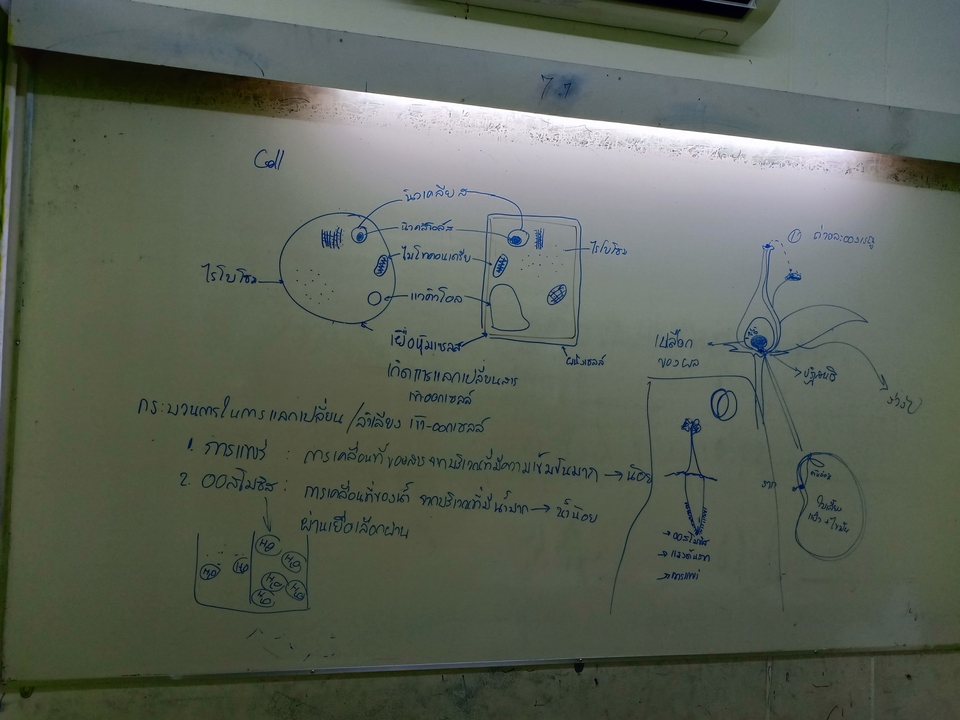 Cell
นิวเคลียส
นิวคลีโอลัส
ไมโทคอนเดรีย
ไรโบโซม
ไรโบโซม
แวคิวโอล
เยื่อหุ้มเซลล์
ผนังเซลล์
เกิดการแลกเปลี่ยนสาร
เข้าออกเซลล์
กระบวนการในการแลกเปลี่ยน/ลำเลียง เข้า-ออกเซลล์
1. การแพร่ : การเคลื่อนที่ของสารจากบริเวณที่มีความเข้มข้นมาก → น้อย
2. ออสโมซิส : การเคลื่อนที่ของน้ำ จากบริเวณที่มีน้ำมาก → น้ำน้อย
ผ่านเยื่อเลือกผ่าน
H₂O H₂O H₂O H₂O H₂O H₂O H₂O
① ถ่ายละอองเรณู
เปลือก
ของผล
ปฏิสนธิ
ร่วงไป
②
ราก
→ ออสโมซิส
→ แรงดันราก
→ การแพร่
ต้นอ่อน
ใบเลี้ยง